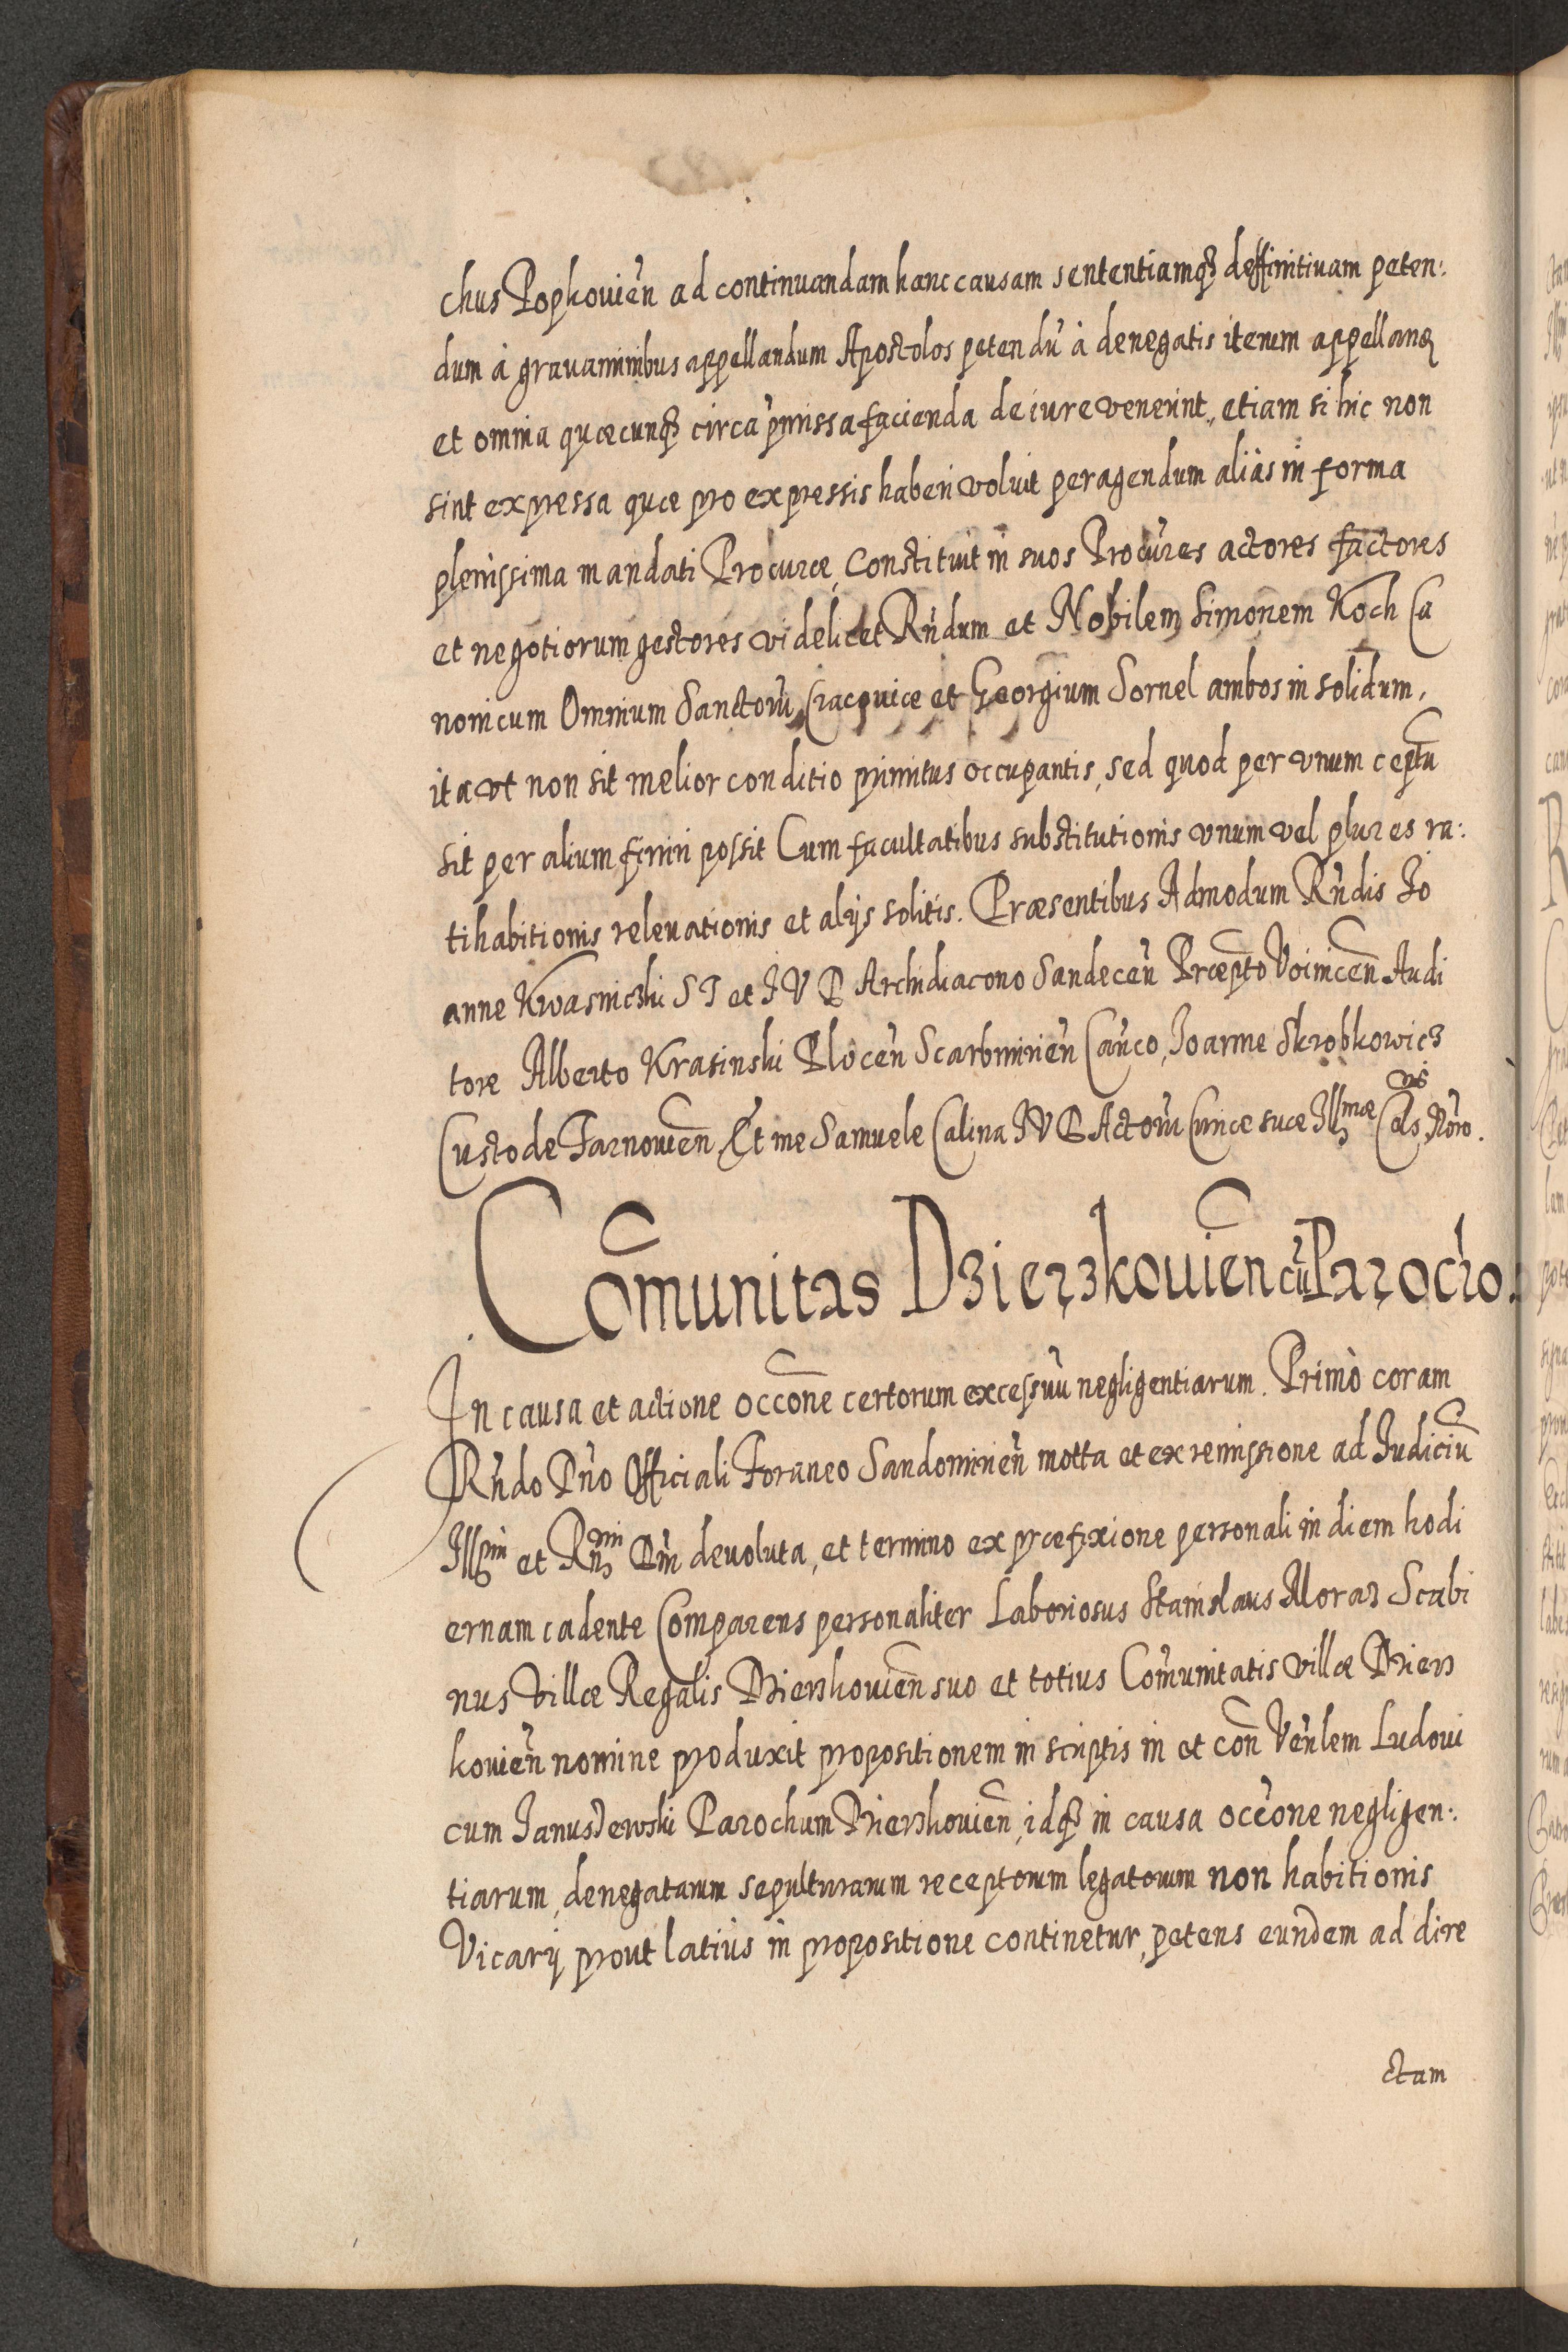 chus Popkovień ad continuandam hanc causam sententiamq₃ deffinitivam peten:
dum à gravaminibus appellandum Apostolos petendū à denegatis iterum appellanđ
et omnia quæcunq₃ circa p̄missa facienda de iure venerint, etiam si hic non
sint expressa quæ pro expressis haberi voluit peragendum alias in forma
plenissima mandati Procuræ, Constituit in suos Procūres actores factores
et negotiorum gestores videlicet Rn̄dum et Nobilem Simonem Koch Ca
nonicum Omnium Sanctorū Cracoviæ et Georgium Sornel ambos in solidum,
ita vt non sit melior conditio primitus occupantis, sed quod per vnum ceptū
sit per alium finiri possit Cum facultatibus substitutionis vnum vel plures ra:
tihabitionis relevationis et alys solitis. Præsentibus Admodum Rn̄dis Jo
anne Kwasnicʒki S T et I V D Archidiacono Sandeceñ Præpto Voiniceñ Audi
tore Alberto Krasinski Ploceñ Scarbmirieñ Cañco, Joanne Skrobkowicʒ
Custode Tarnovieñ, Et me Samuele Calina IVD Actorū Curiæ suæ Illmæ Cels nis Noro.
Com̄unitas Dʒierʒkovień cū Parocho.
In causa et actione occōne certorum excessuū negligentiarum. Primò coram
Rn̄do Dn̄o Officiali Foraneo Sandomirieñ motta et ex remissione ad Judiciū
Illmi et Rn̄mi Dn̄i devoluta, et termino ex præfixione personali in diem hodi
ernam cadente Comparens personaliter Laboriosus Stanislaus Moraʒ Scabi
nus Villæ Regalis Dʒierʒkovień suo et totius Com̄unitatis villæ Dʒierʒ
kovień nomine produxit propositionem in scriptis in et con̄ Ven̄lem Ludovi
cum Janusʒewski Parochum Dʒierʒkovień, idq₃ in causa occōne negligen:
tiarum, denegatarum sepulturarum receptorum legatorum non habitionis
Vicarij prout latius in propositione continetur, petens eundem ad dire
ctam